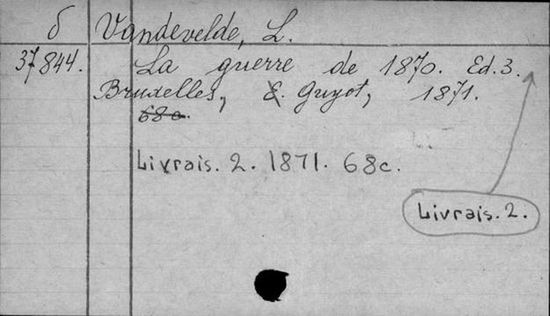 б Vandevelde, L.
37844. La guerre de 1870. Ed. 3.
Bruxelles, E. Guyot, 1871.
68c.
Livrais. 2. 1871. 68c.
Livrais. 2.